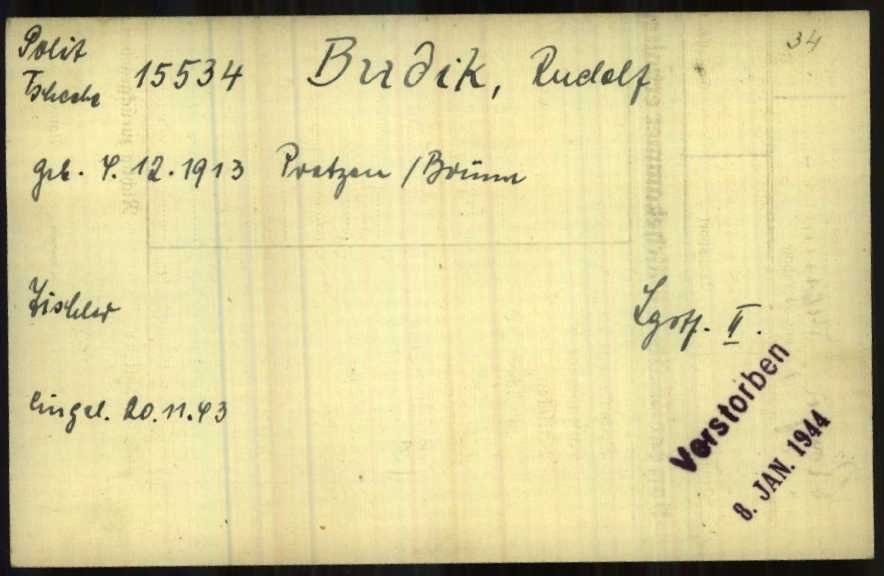 Polit
Tscheche 15534 Budik, Rudolf
34
geb. 4.12.1913 Pratzen / Brünn
Tischler
Lgstf. II.
eingel. 20.11.43
Verstorben
8. JAN. 1944